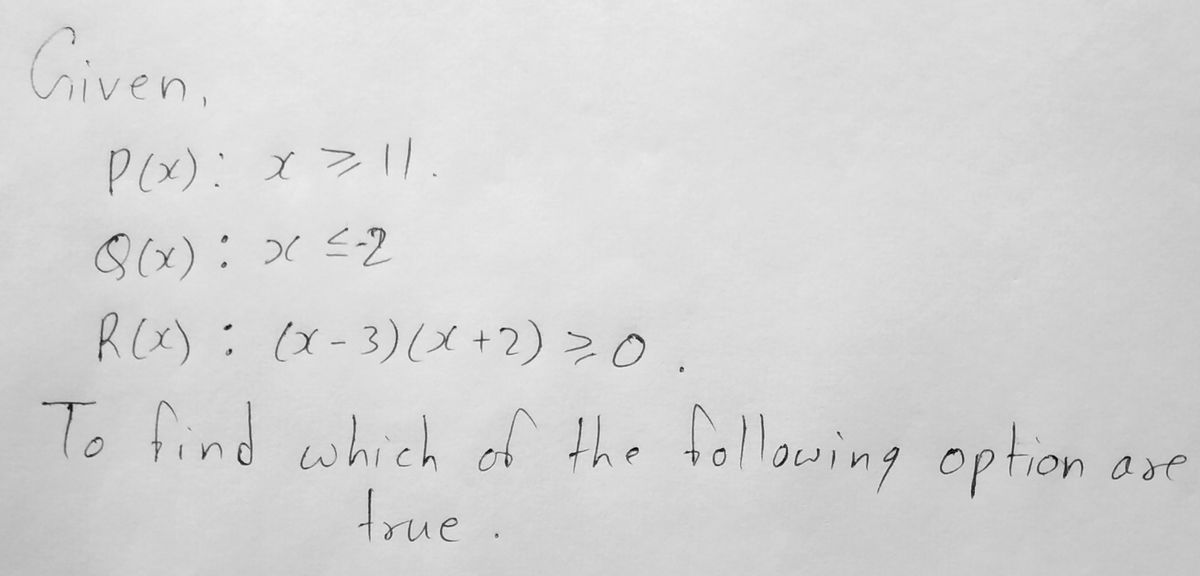 Given,
P(x): x ⩾ 11.
Q(x): x ≤ -2
R(x): (x-3)(x+2) ⩾ 0.
To find which of the following option are
true.